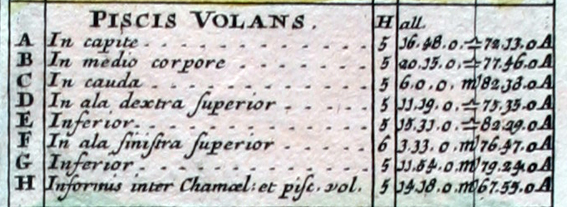 PISCIS VOLANS. H all.
A In capite 5 16.48.0.♎72.13.0A
B In medio corpore 5 20.15.0.♎77.46.0A
C In cauda 5 6.0.0.♏82.38.0A
D In ala dextra ſuperior 5 11.19.0.♎75.35.0A
E Inferior. 5 15.31.0.♎82.29.0A
F In ala ſiniſtra ſuperior 6 3.33.0.♏76.47.0A
G Inferior 5 11.54.0.♏79.24.0A
H Informis inter Chamæl: et piſc. vol. 5 14.18.0.♏67.55.0A